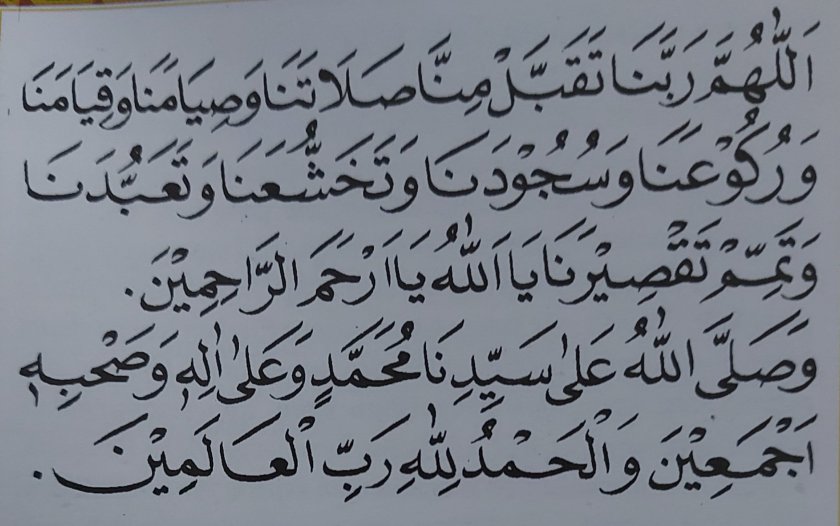 اَللّٰهُمَّ رَبَّنَا تَقَبَّلْ مِنَّا صَلَاتَنَا وَصِيَامَنَا وَقِيَامَنَا
وَرُكُوْعَنَا وَسُجُوْدَنَا وَتَخَشُّعَنَا وَتَعَبُّدَنَا
وَتَمِّمْ تَقْصِيْرَنَا يَا اَللّٰهُ يَا اَرْحَمَ الرَّاحِمِيْنَ.
وَصَلَّى اللّٰهُ عَلٰى سَيِّدِنَا مُحَمَّدٍ وَعَلٰى اٰلِهٖ وَصَحْبِهٖ
اَجْمَعِيْنَ وَالْحَمْدُ لِلّٰهِ رَبِّ الْعَالَمِيْنَ.